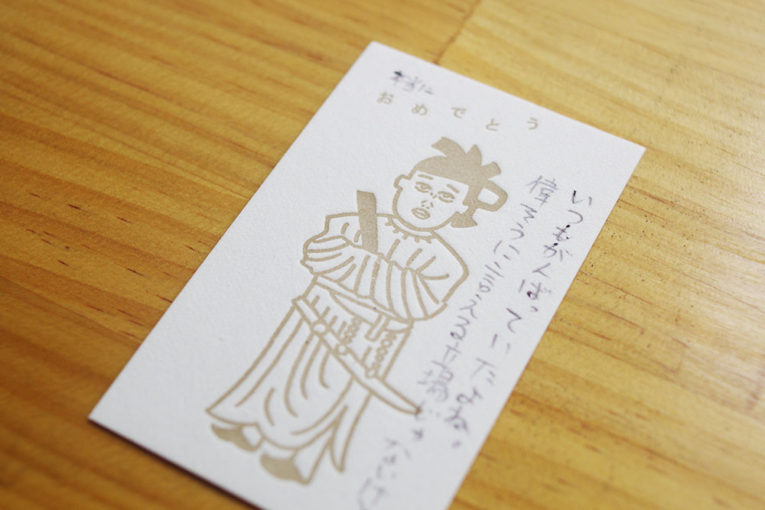 本当に
おめでとう
いつもがんばっていたよね。
偉そうに言える立場じゃないけ